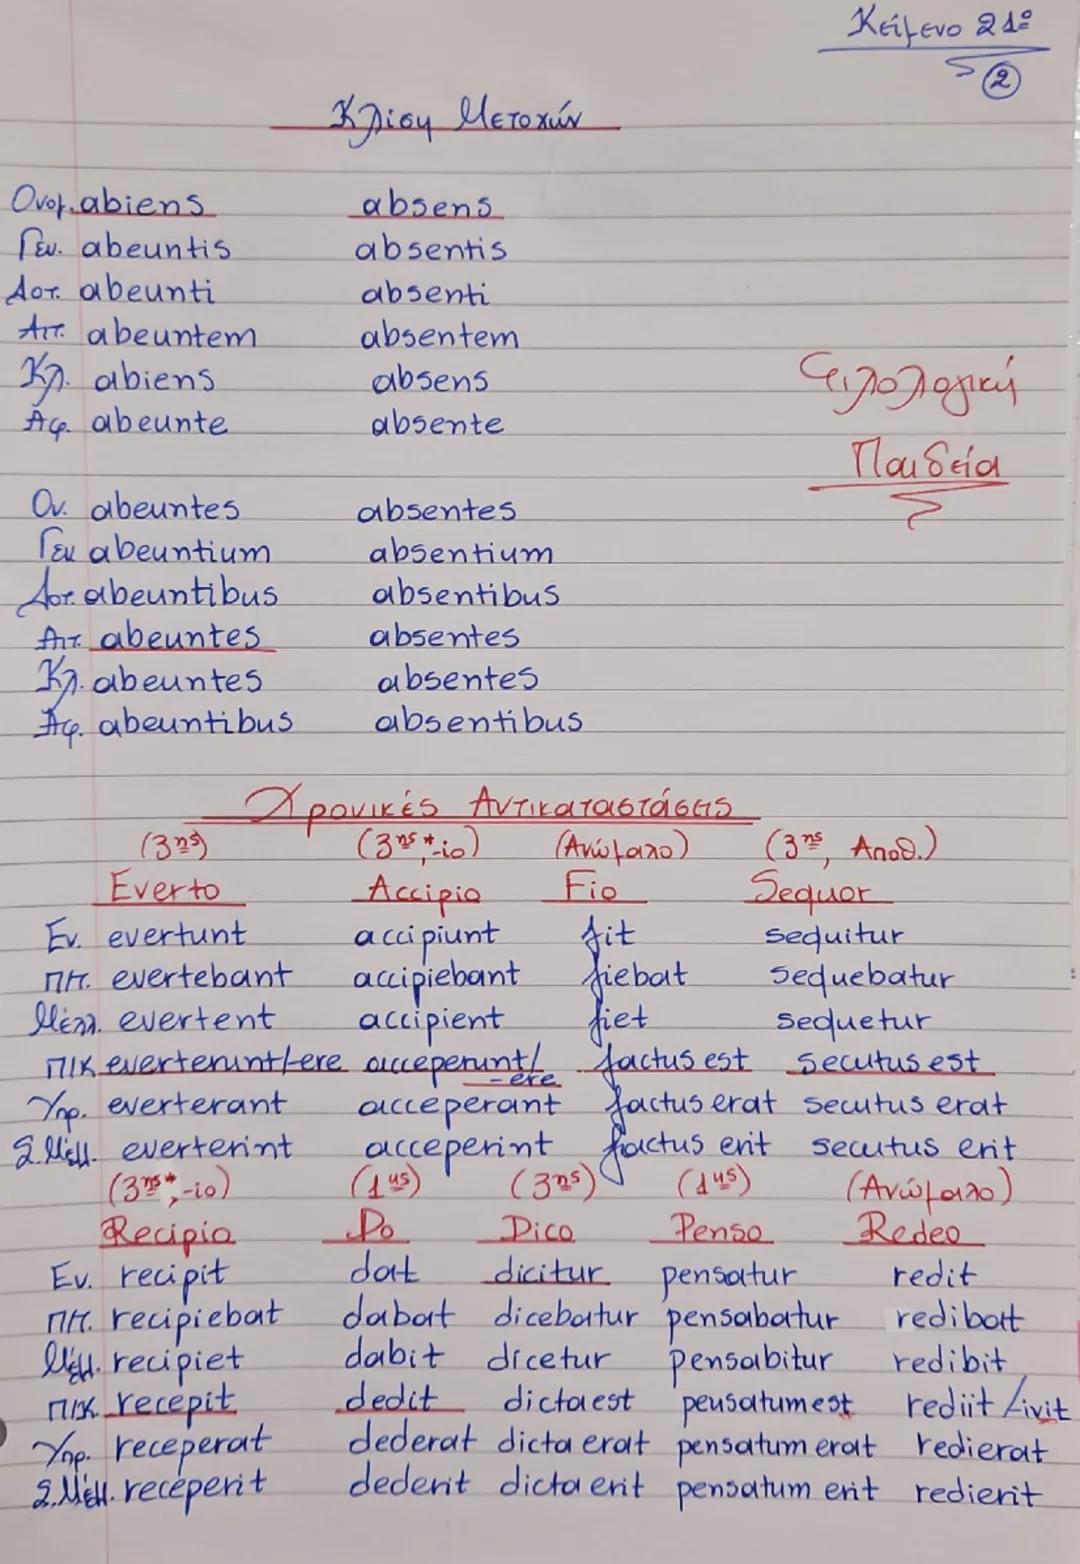 Κείμενο 21º
②
Κλίση Μετοχών
Ονομ. abiens absens
Γεν. abeuntis absentis
Δοτ. abeunti absenti
Αιτ. abeuntem absentem
Κλ. abiens absens
Αφ. abeunte absente
Φιλολογική
Παιδεία
Ον. abeuntes absentes
Γεν abeuntium absentium
Δοτ. abeuntibus absentibus
Αιτ. abeuntes absentes
Κλ. abeuntes absentes
Αφ. abeuntibus absentibus
Χρονικές Αντικαταστάσεις
(3ης) (3ης*,-io) (Ανώμαλο) (3ης, Αποθ.)
Everto Accipio Fio Sequor
Εν. evertunt accipiunt fit sequitur
ΠΤ. evertebant accipiebant fiebat sequebatur
Μέλλ. evertent accipient fiet sequetur
ΠΚ everterunt/-ere acceperunt/-ere factus est secutus est
Υπρ. everterant acceperant factus erat secutus erat
Σ.Μέλλ. everterint acceperint factus erit secutus erit
(3ης*,-io) (1ης) (3ης) (1ης) (Ανώμαλο)
Recipio Do Dico Penso Redeo
Εν. recipit dat dicitur pensatur redit
ΠΤ. recipiebat dabat dicebatur pensabatur redibat
Μέλλ. recipiet dabit dicetur pensabitur redibit
ΠΚ recepit dedit dicta est pensatum est rediit/-ivit
Υπρ. receperat dederat dicta erat pensatum erat redierat
Σ.Μέλλ. receperit dederit dicta erit pensatum erit redierit